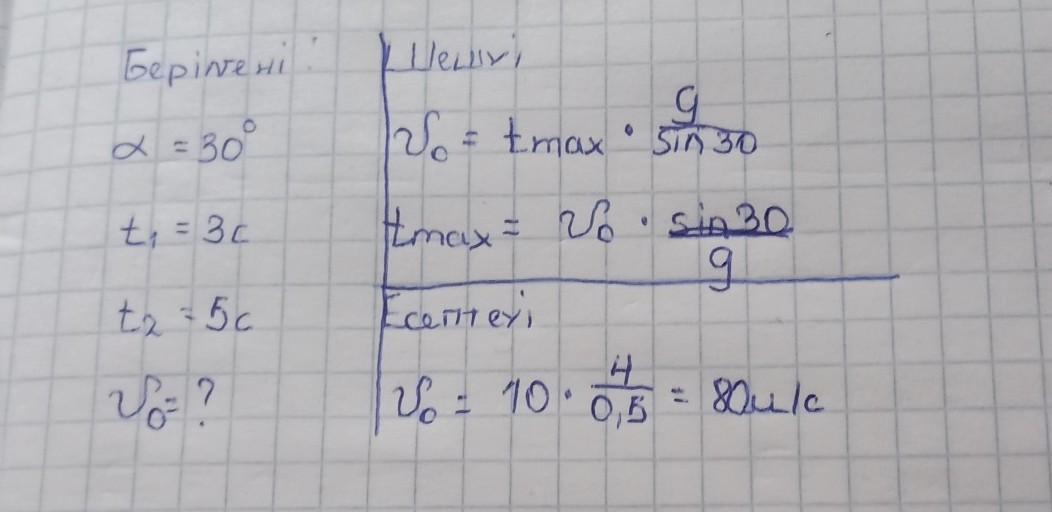 Берілгені:
α = 30°
t₁ = 3с
t₂ = 5с
υ₀ = ?
Шешуі
υ₀ = tmax · g / sin 30
tmax = υ₀ · sin 30 / g
Есептеуі
υ₀ = 10 · 4 / 0,5 = 80м/с